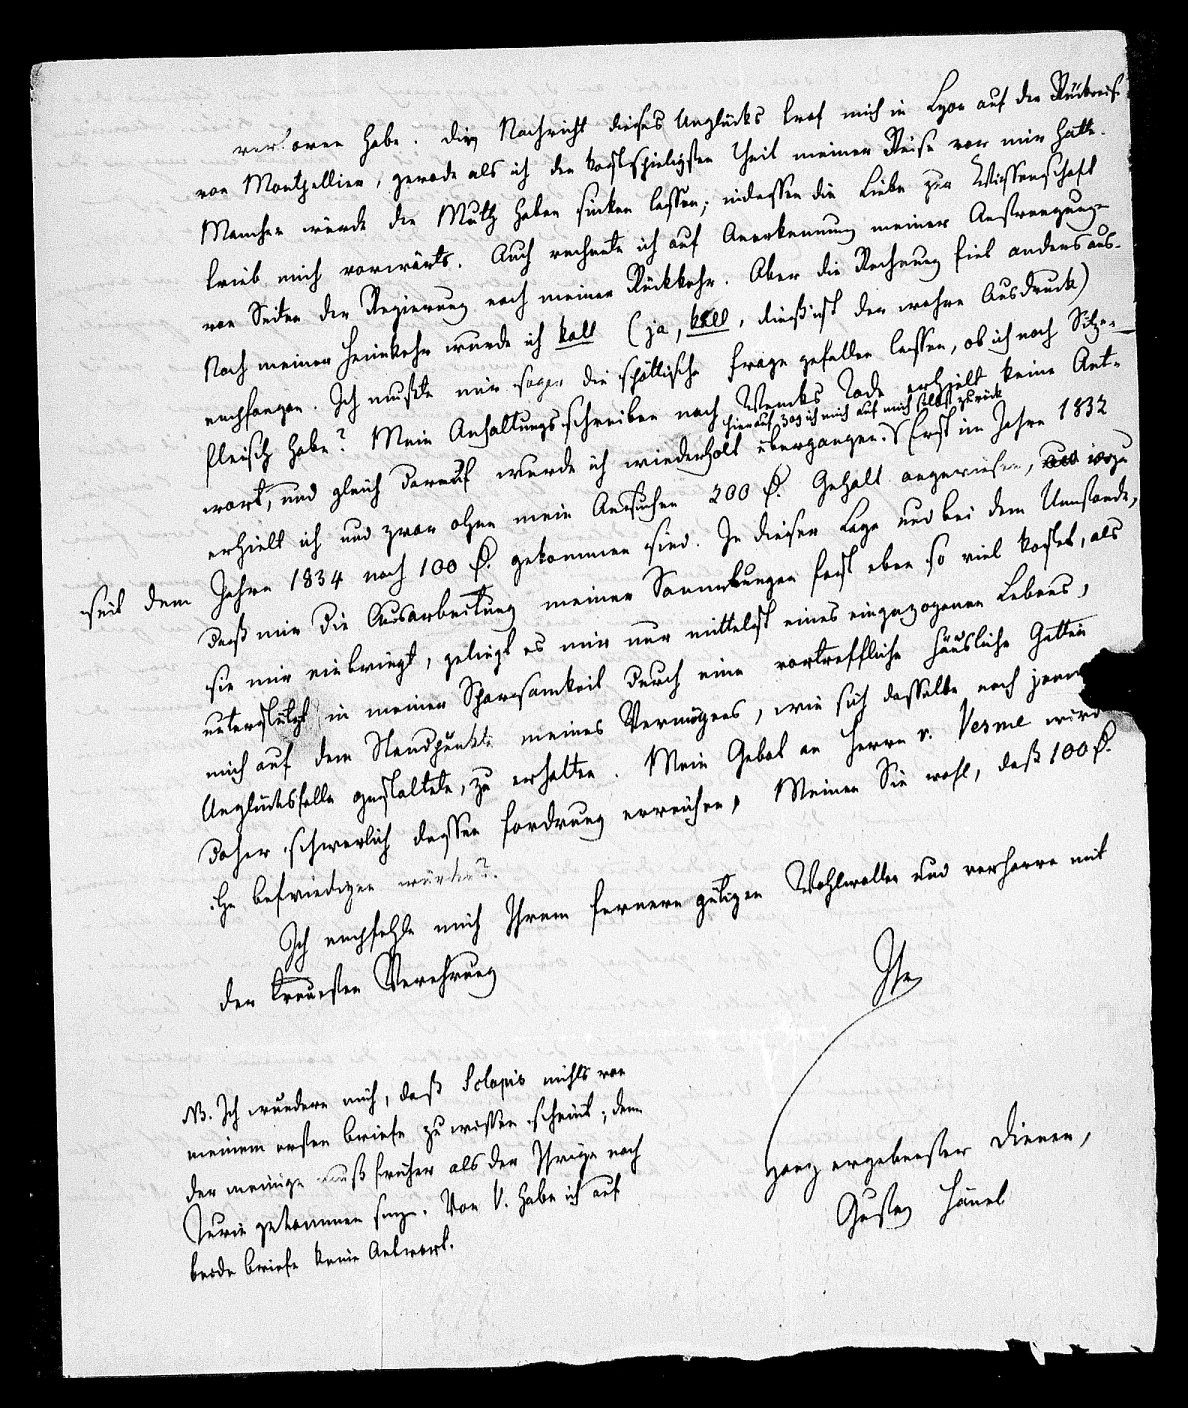 verloren habe. Die Nachricht dieses Unglücks traf mich in Lyon auf der Rückreise
von Montpellier, gerade als ich den kostspieligsten Theil meiner Reise vor mir hatte.
Mancher würde den Muth haben sinken lassen; indessen die Liebe zur Wissenschaft
trieb mich vorwärts. Auch rechnete ich auf Anerkennung meiner Anstrengungen
von Seiten der Regierung nach meiner Rückkehr. Aber die Rechnung fiel anders aus.
Nach meiner Heimkehr wurde ich kalt (ja, kalt, dieß ist der wahre Ausdruck)
empfangen. Ich mußte mir sogar die spöttische Frage gefallen lassen, ob ich noch Sitze-
fleisch habe? Mein Anhaltungsschreiben nach Wencks Tode erhielt keine Ant-
wort, und gleich darauf wurde ich wiederholt übergangen. Hierauf zog ich mich auf mich selbst zurück. Erst im Jahre 1832
erhielt ich und zwar ohne mein Ansuchen 200 ₰. Gehalt angewiesen, wozu
seit dem Jahre 1834 noch 100 ₰. gekommen sind. In dieser Lage und bei dem Umstande,
daß mir die Ausarbeitung meiner Sammlungen fast eben so viel kostet, als
sie mir einbringt, gelingt es mir nur mittelst eines eingezogenen Lebens,
unterstützt in meiner Sparsamkeit durch eine vortreffliche häusliche Gattin
mich auf dem Standpunkte meines Vermögens, wie sich dasselbe nach jenem
Unglücksfalle gestaltete, zu erhalten. Mein Gebot an Herrn v. Vesme wird
daher schwerlich dessen Fordrung erreichen. Meinen Sie wohl, daß 100 ₰.
ihn befriedigen würden?
Ich empfehle mich Ihrem fernern gütigen Wohlwollen und verharre mit
der treuesten Verehrung
Ihr
ganz ergebenster Diener,
Gustav Hänel
NB. Ich wundere mich, daß Sclopis nichts von
meinem ersten Briefe zu wissen scheint; denn
der meinige muß früher als der Ihrige nach
Turin gekommen seyn. Von V. habe ich auf
beide Briefe keine Antwort.